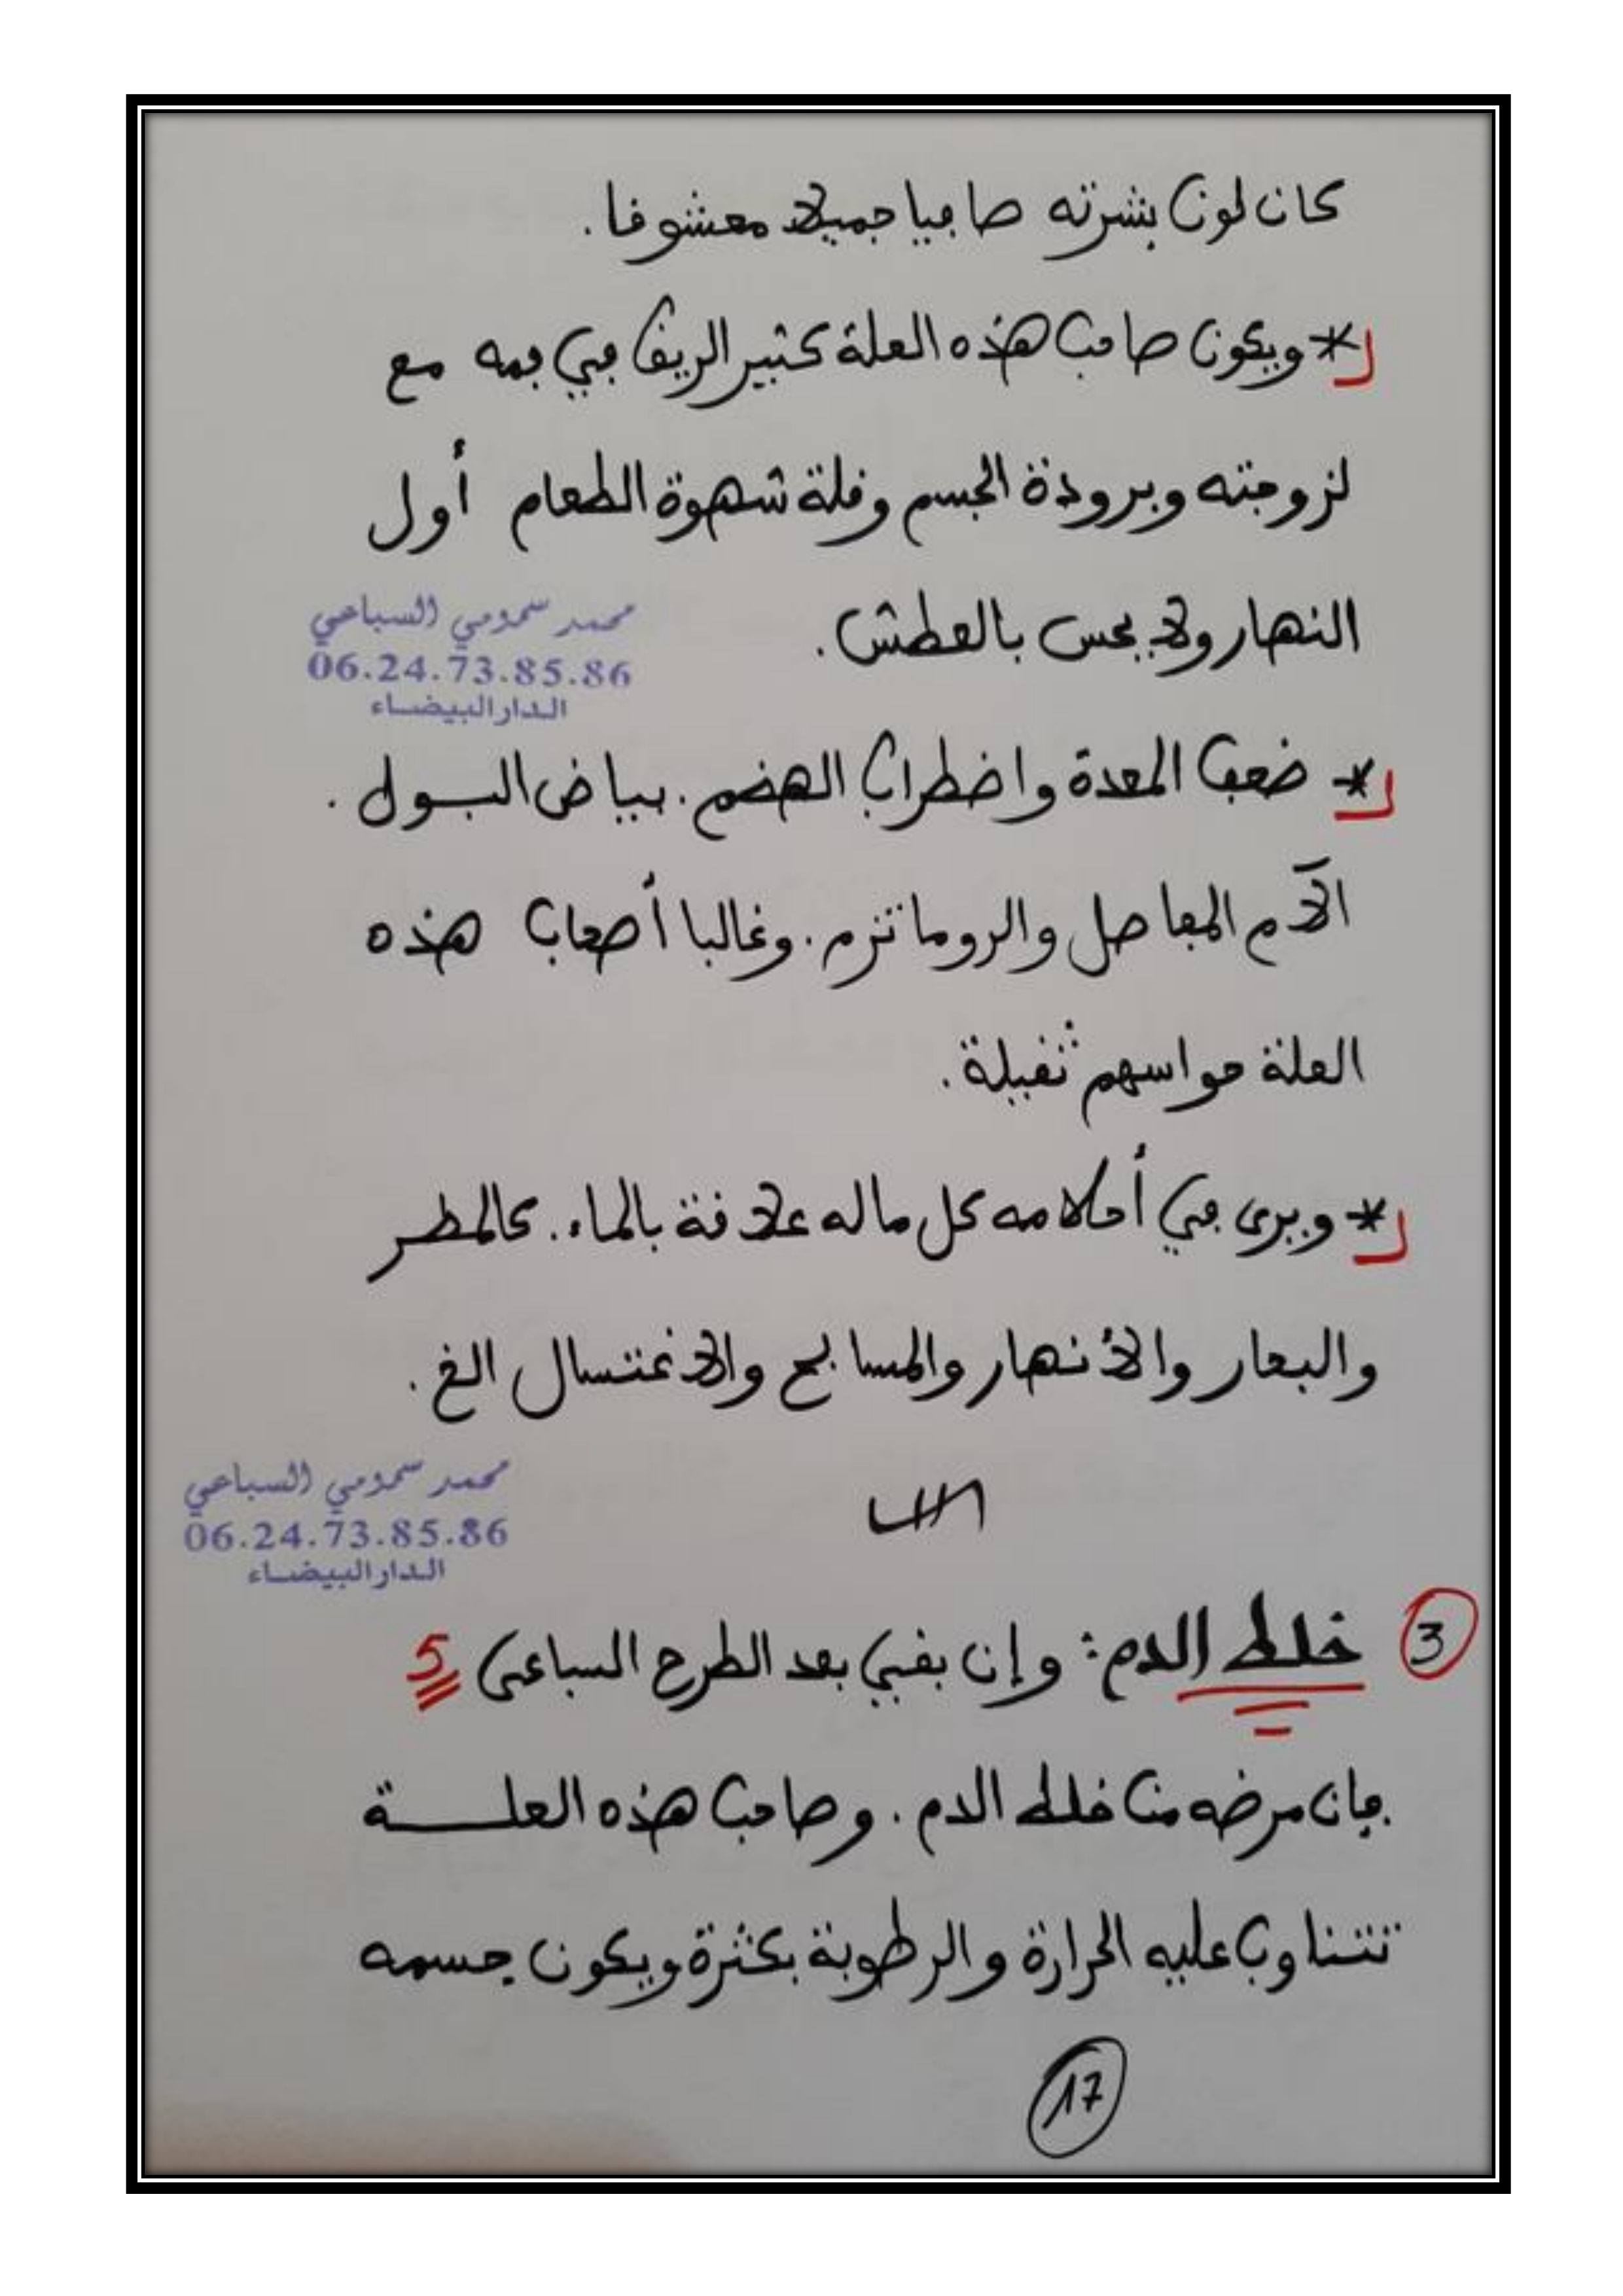 كان لون بشرته صافيا جميلا معشوقا.
* ويكون صاحب هذه العلة كثير الريق في فمه مع
لزوجته وبرودة الجسم وقلة شهوة الطعام أول
النهار ولا يحس بالعطش.
محمد سمومي السباعي
06.24.73.85.86
الدار البيضاء
* ضعف المعدة واضطراب الهضم. بياض البول.
آلام المفاصل والروماتزم. وغالبا أصحاب هذه
العلة حواسهم ثقيلة.
* ويرى في أحلامه كل ماله علاقة بالماء. كالمطر
والبحار والأنهار والمسابح والاغتسال الخ.
محمد سمومي السباعي
06.24.73.85.86
الدار البيضاء
3 خلط الدم: وإن بقي بعد الطرح السباعي 5
فإن مرضه من خلط الدم. وصاحب هذه العلة
تتناوب عليه الحرارة والرطوبة بكثرة ويكون جسمه
17